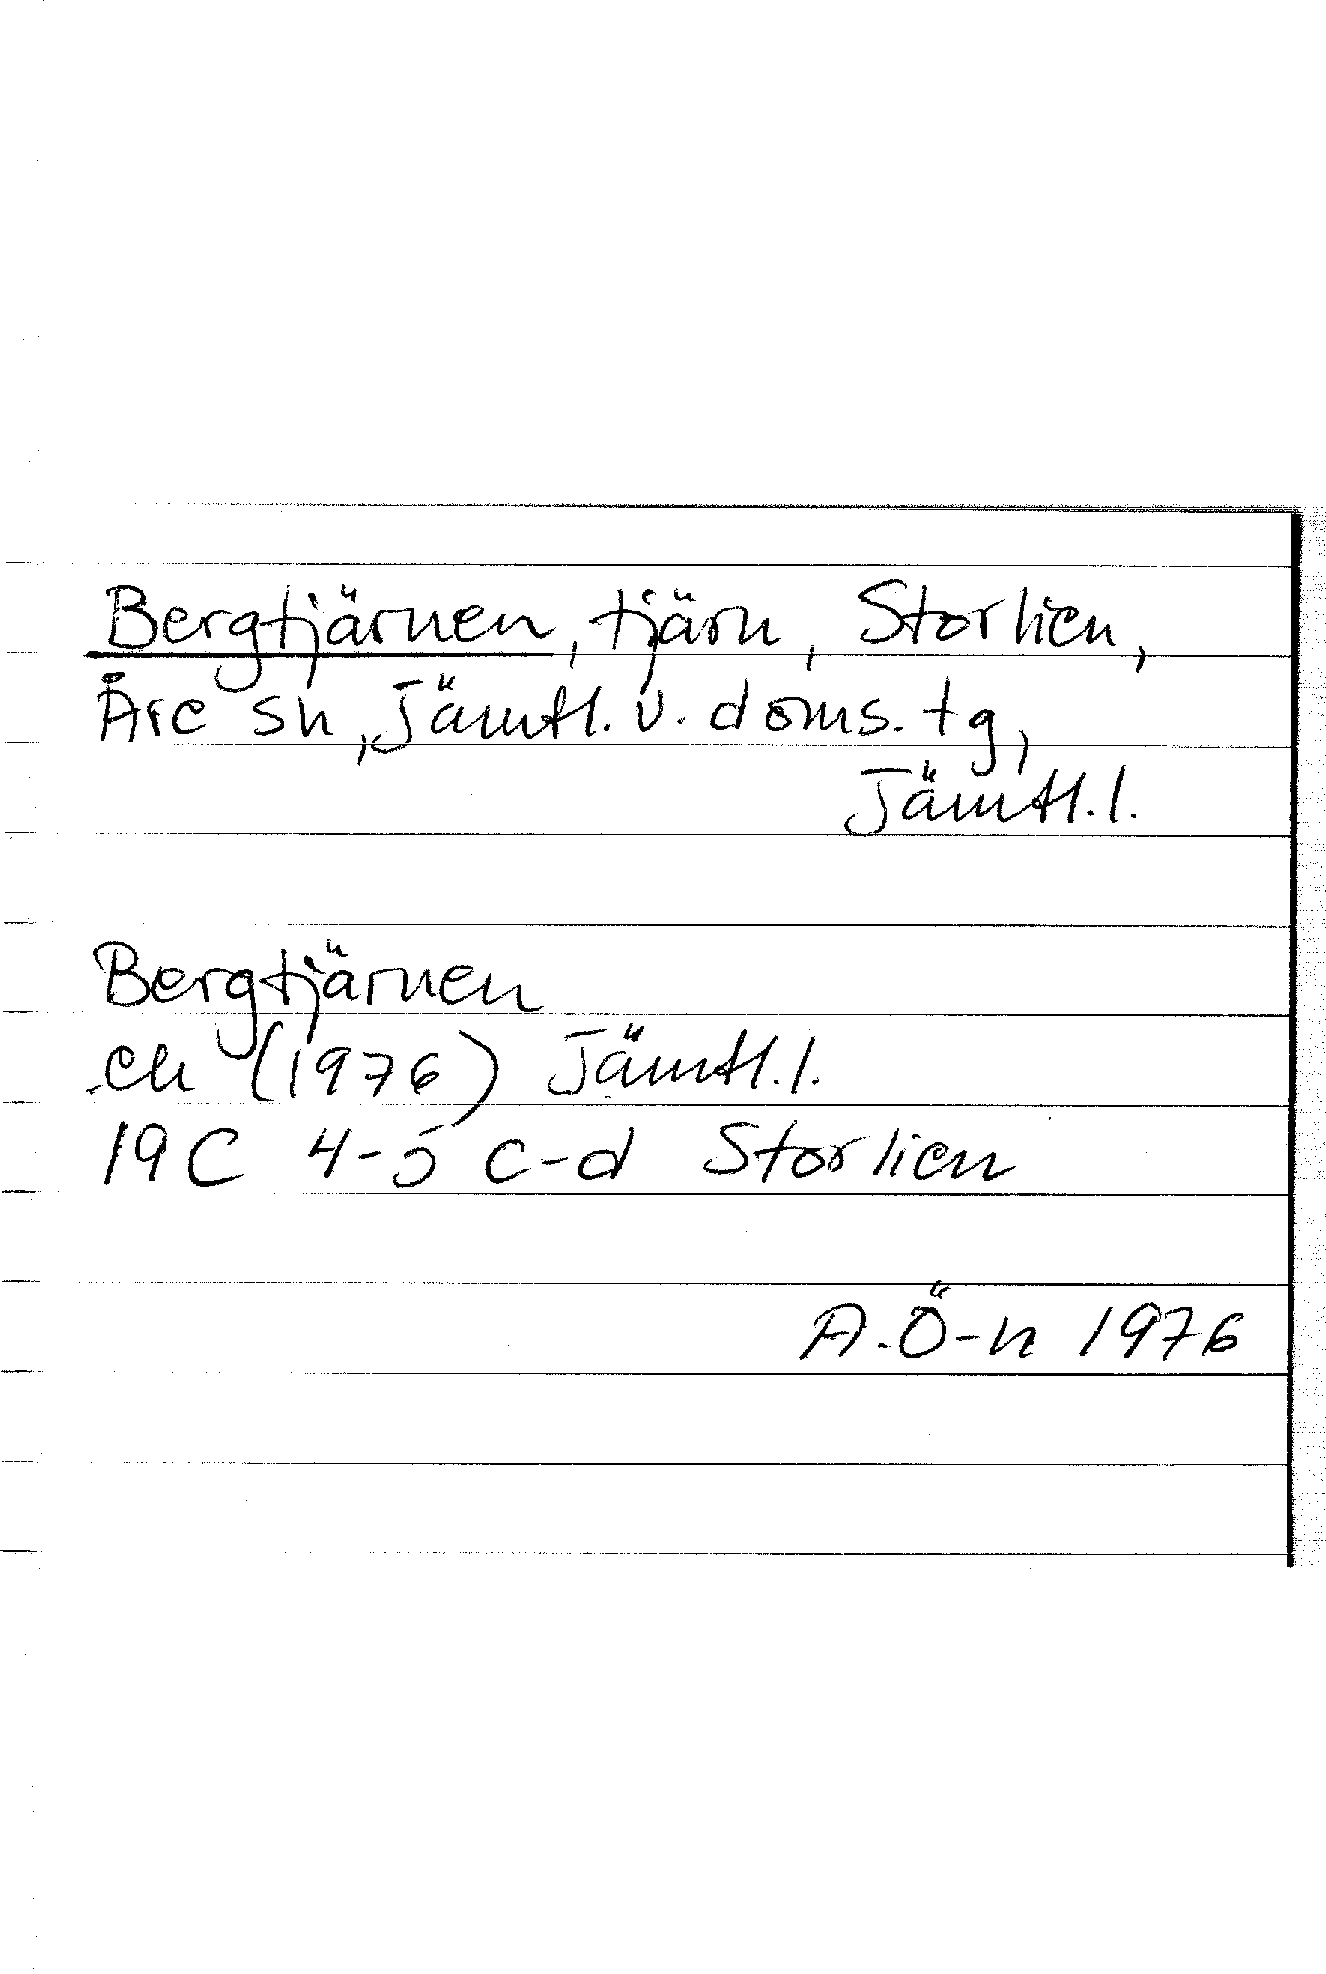 Bergtjärnen, tjärn, Storlien,
Åre sn, Jämtl. v. doms. tg,
Jämtl. l.
Bergtjärnen
ek (1976) Jämtl. l.
19C 4-5 c-d Storlien
A.Ö-n 1976